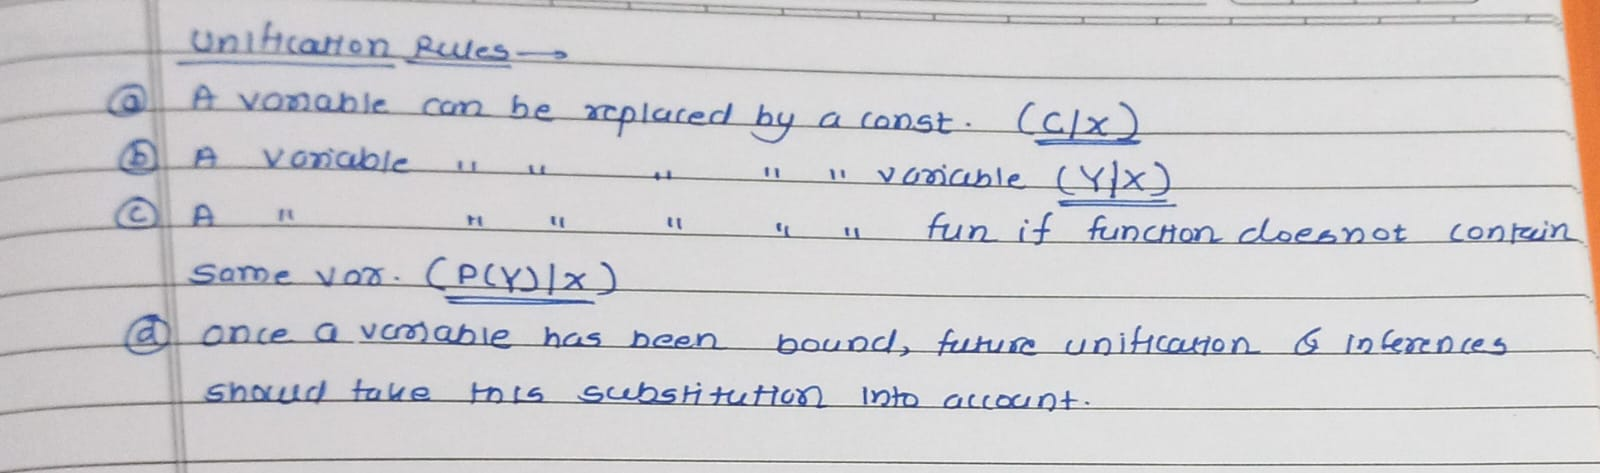 Unification Rules →
(a) A variable can be replaced by a const. (C/X)
(b) A variable " " " " " variable (Y/X)
(c) A " " " " " " fun if function doesnot contain
same var. (P(Y)/X)
(d) once a variable has been bound, future unification & inferences
should take this substitution into account.